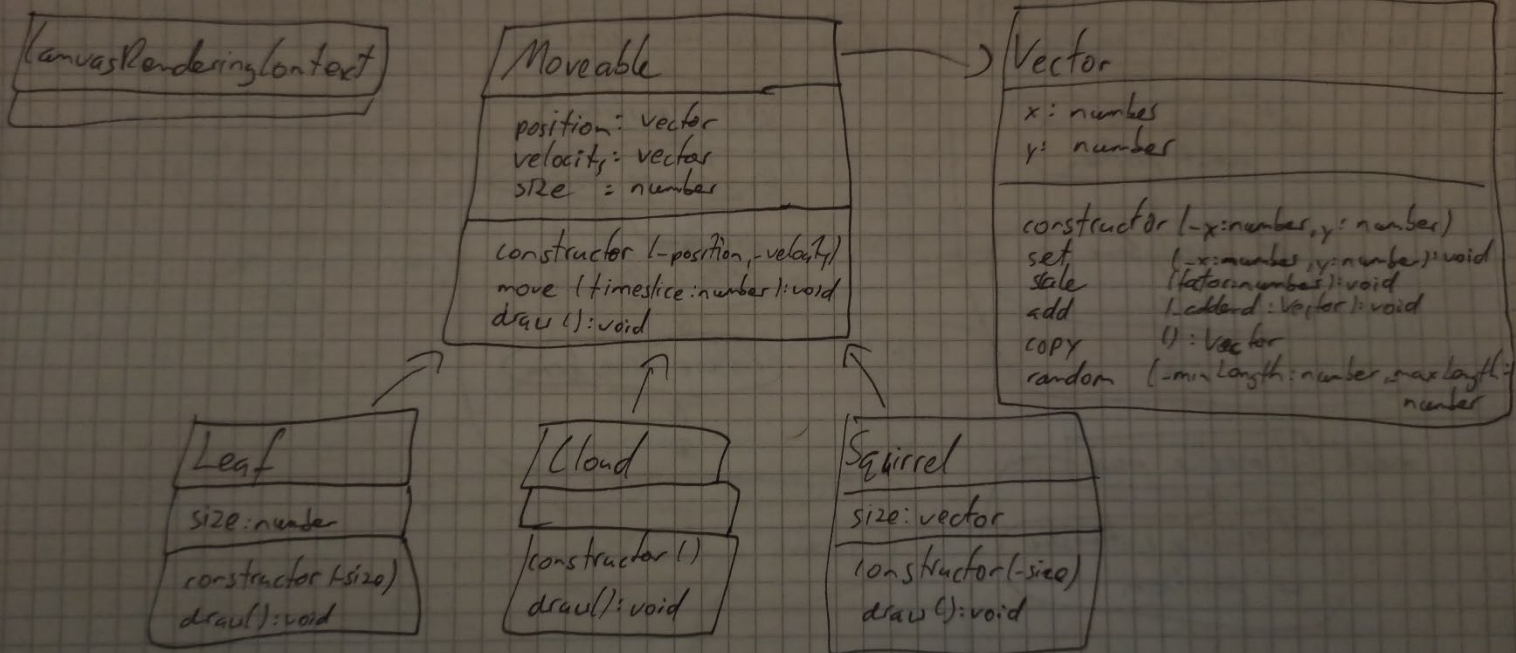 CanvasRenderingContext
Moveable
position: vector
velocity: vector
size : number
constructor (-position, -velocity)
move (timeslice:number):void
draw ():void
Vector
x: number
y: number
constructor (-x:number, y: number)
set (-x:number, y:number):void
scale (factor:number):void
add (-addend: Vector): void
copy () : Vector
random (-minLength: number, maxLength:
number
Leaf
size:number
constructor (-size)
draw():void
Cloud
constructor ()
draw():void
Squirrel
size: vector
constructor (-size)
draw():void